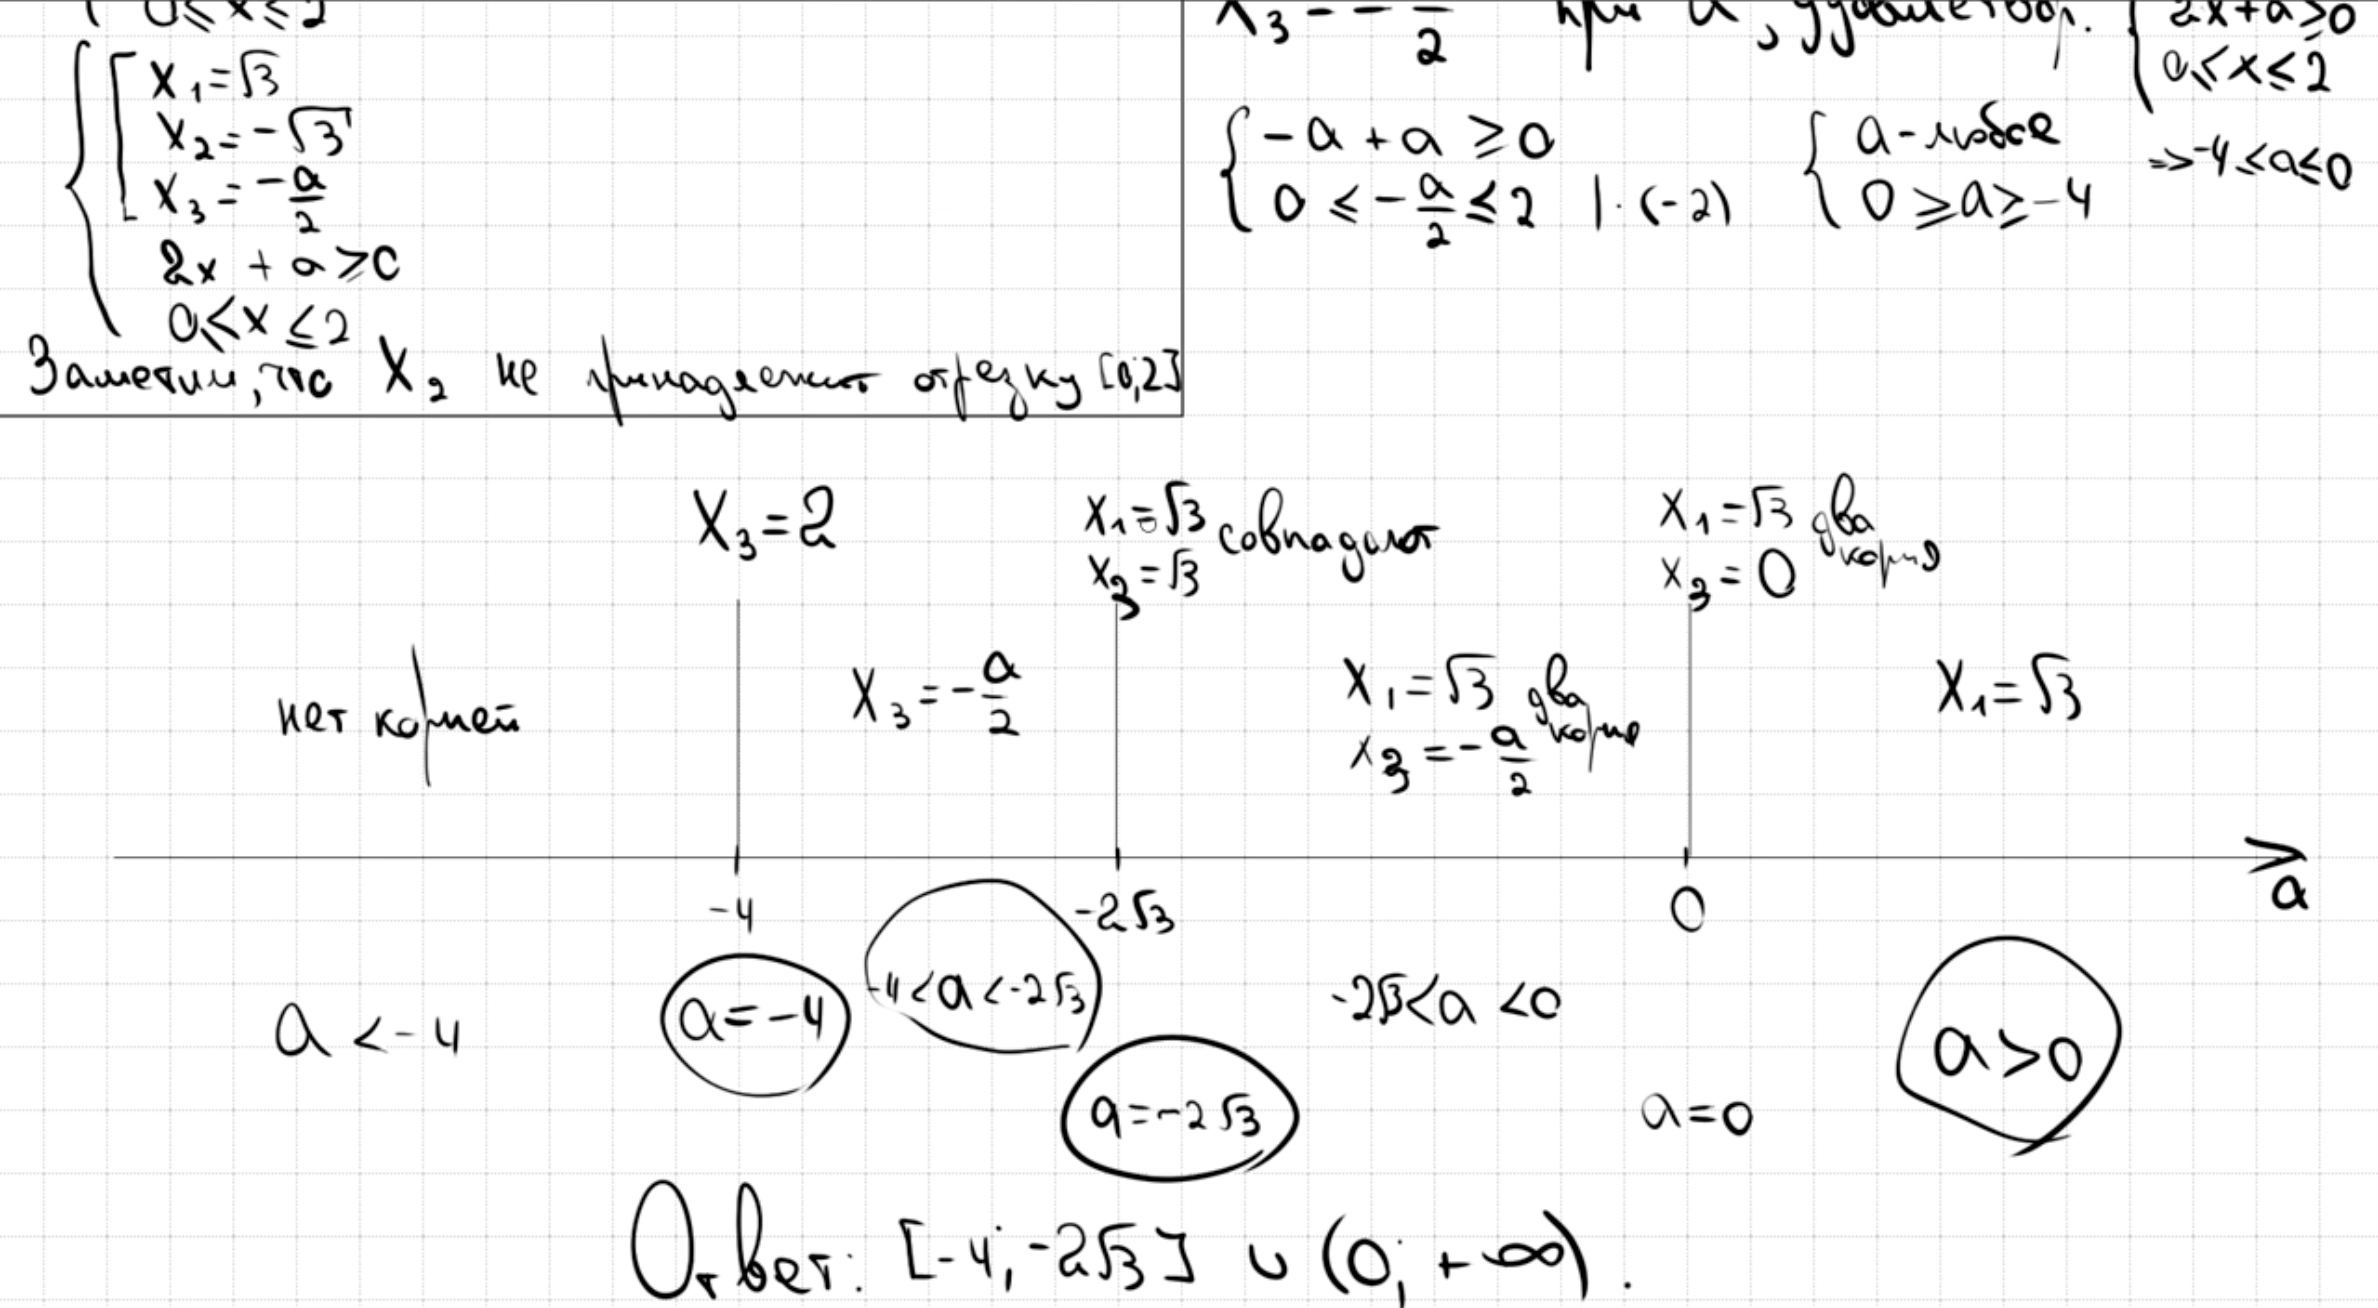 0 ≤ x ≤ 2
x₁ = √3
x₂ = -√3
x₃ = -a/2
2x + a ≥ 0
0 ≤ x ≤ 2
Заметим, что x₂ не принадлежит отрезку [0;2]
x₃ = -a/2 при a, удовлетвор. 2x + a ≥ 0
0 ≤ x ≤ 2
-a + a ≥ 0
0 ≤ -a/2 ≤ 2 | · (-2)
a - любое
0 ≥ a ≥ -4
=> -4 ≤ a ≤ 0
x₃ = 2
x₁ = √3
x₃ = √3
совпадают
x₁ = √3
x₃ = 0
два корня
нет корней
x₃ = -a/2
x₁ = √3
x₃ = -a/2
два корня
x₁ = √3
-4
-2√3
0
a
a < -4
a = -4
-4 < a < -2√3
a = -2√3
-2√3 < a < 0
a = 0
a > 0
Ответ: [-4; -2√3] ∪ (0; +∞).